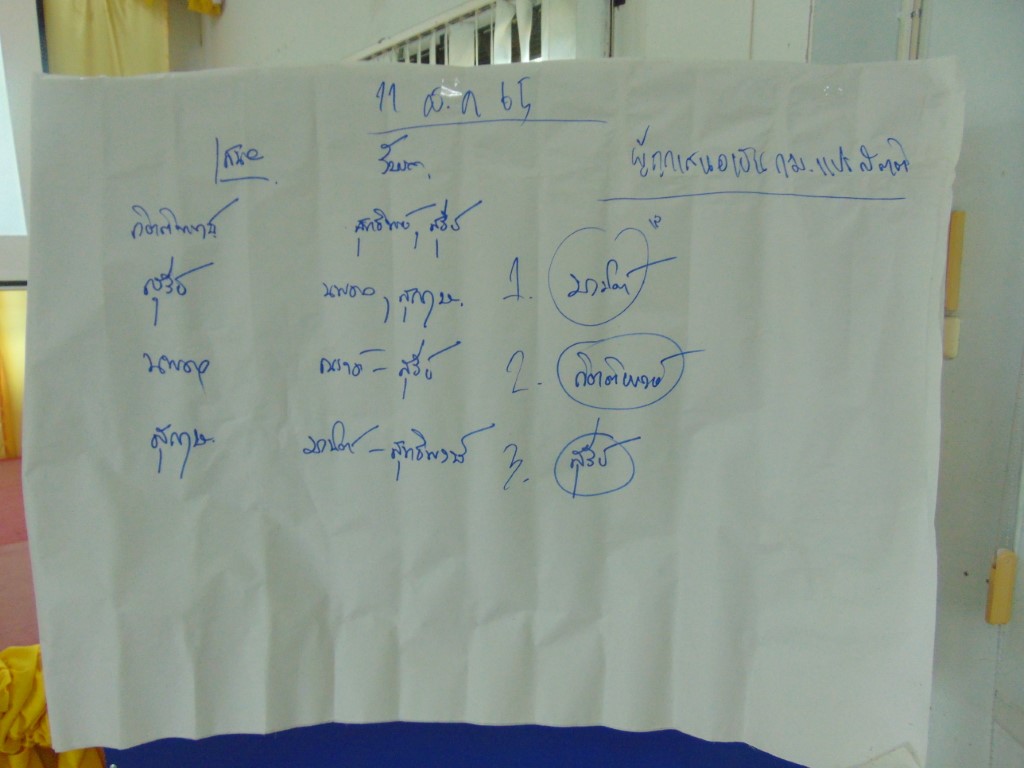 11 ส.ค 65
เสนอ รับรอง ผู้ถูกเสนอเป็น กม.แปรญัตติ
กิตติพงษ์ สุทธิพงษ์, สุรีย์
สุรีย์ นพดล, สุกฤษ 1. มานิต
นพดล ณรงค์ - สุรีย์ 2. กิตติพงษ์
สุกฤษ มานิต - สุทธิพงษ์ 3. สุรีย์